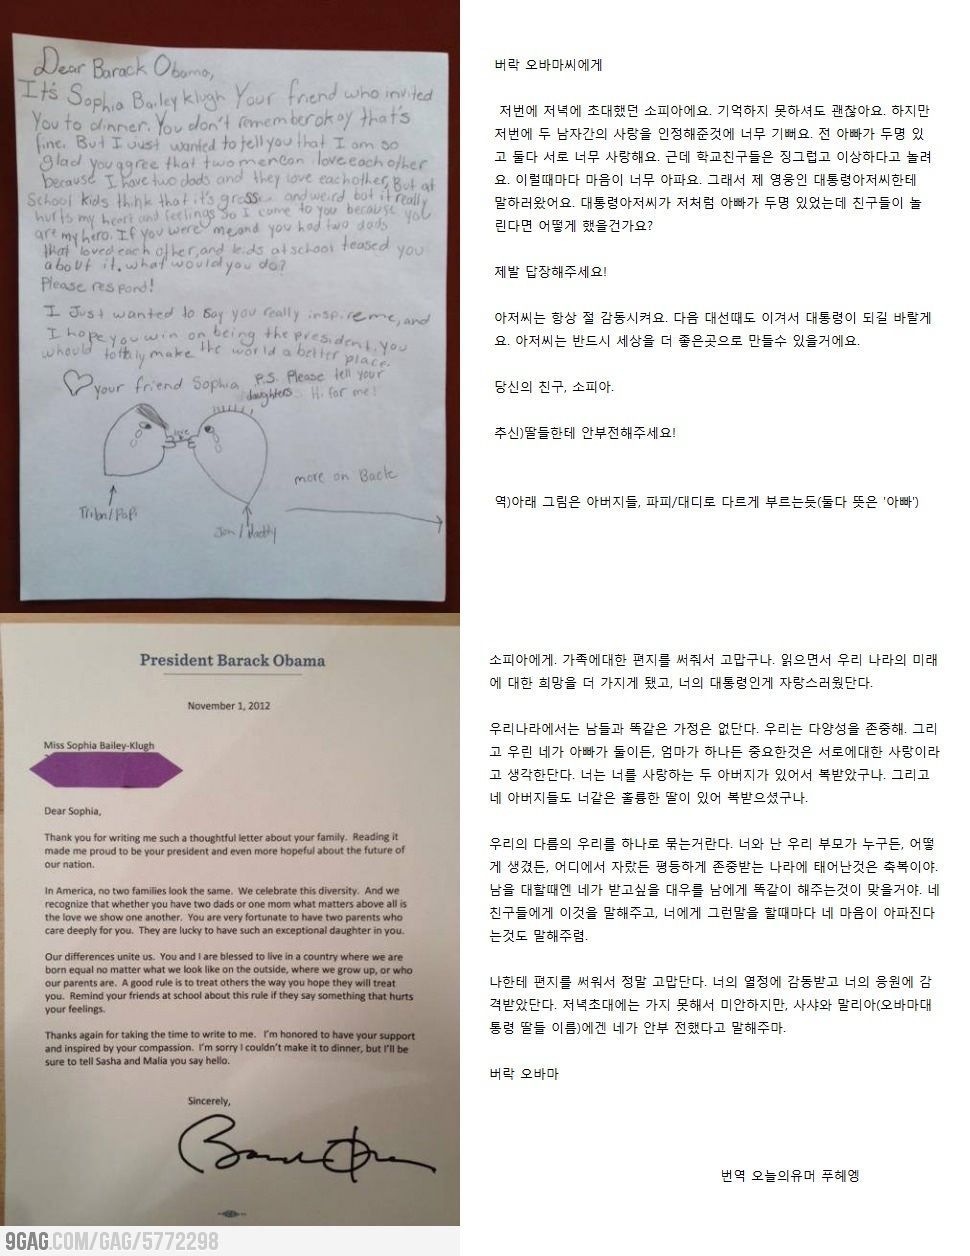 Dear Barack Obama,
It's Sophia Bailey klugh Your friend who invited
You to dinner. You don't remember okay that's
fine. But I Just wanted to tell you that I am so
glad you agree that two men can love each other
because I have two dads and they love each other, But at
School kids think that it's gross and weird but it really
hurts my heart and feelings So I come to you because you
are my hero. If you were me and you had two dads
that loved each other, and kids at school teased you
about it, what would you do?
Please respond!
I Just wanted to say you really inspire me, and
I hope you win on being the president. You
whould totally make the world a better place.
your friend Sophia
P.S. Please tell your
daughters Hi for me!
love
more on Back
/Papi
Jon/Daddy
버락 오바마씨에게
저번에 저녁에 초대했던 소피아에요. 기억하지 못하셔도 괜찮아요. 하지만
저번에 두 남자간의 사랑을 인정해준것에 너무 기뻐요. 전 아빠가 두명 있
고 둘다 서로 너무 사랑해요. 근데 학교친구들은 징그럽고 이상하다고 놀려
요. 이럴때마다 마음이 너무 아파요. 그래서 제 영웅인 대통령아저씨한테
말하러왔어요. 대통령아저씨가 저처럼 아빠가 두명 있었는데 친구들이 놀
린다면 어떻게 했을건가요?
제발 답장해주세요!
아저씨는 항상 절 감동시켜요. 다음 대선때도 이겨서 대통령이 되길 바랄게
요. 아저씨는 반드시 세상을 더 좋은곳으로 만들수 있을거에요.
당신의 친구, 소피아.
추신)딸들한테 안부전해주세요!
역)아래 그림은 아버지들, 파피/대디로 다르게 부르는듯(둘다 뜻은 '아빠')
President Barack Obama
November 1, 2012
Miss Sophia Bailey-Klugh
Dear Sophia,
Thank you for writing me such a thoughtful letter about your family. Reading it
made me proud to be your president and even more hopeful about the future of
our nation.
In America, no two families look the same. We celebrate this diversity. And we
recognize that whether you have two dads or one mom what matters above all is
the love we show one another. You are very fortunate to have two parents who
care deeply for you. They are lucky to have such an exceptional daughter in you.
Our differences unite us. You and I are blessed to live in a country where we are
born equal no matter what we look like on the outside, where we grow up, or who
our parents are. A good rule is to treat others the way you hope they will treat
you. Remind your friends at school about this rule if they say something that hurts
your feelings.
Thanks again for taking the time to write to me. I'm honored to have your support
and inspired by your compassion. I'm sorry I couldn't make it to dinner, but I'll be
sure to tell Sasha and Malia you say hello.
Sincerely,
소피아에게. 가족에대한 편지를 써줘서 고맙구나. 읽으면서 우리 나라의 미래
에 대한 희망을 더 가지게 됐고, 너의 대통령인게 자랑스러웠단다.
우리나라에서는 남들과 똑같은 가정은 없단다. 우리는 다양성을 존중해. 그리
고 우린 네가 아빠가 둘이든, 엄마가 하나든 중요한것은 서로에대한 사랑이라
고 생각한단다. 너는 너를 사랑하는 두 아버지가 있어서 복받았구나. 그리고
네 아버지들도 너같은 훌륭한 딸이 있어 복받으셨구나.
우리의 다름의 우리를 하나로 묶는거란다. 너와 난 우리 부모가 누구든, 어떻
게 생겼든, 어디에서 자랐든 평등하게 존중받는 나라에 태어난것은 축복이야.
남을 대할때엔 네가 받고싶을 대우를 남에게 똑같이 해주는것이 맞을거야. 네
친구들에게 이것을 말해주고, 너에게 그런말을 할때마다 네 마음이 아파진다
는것도 말해주렴.
나한테 편지를 써워서 정말 고맙단다. 너의 열정에 감동받고 너의 응원에 감
격받았단다. 저녁초대에는 가지 못해서 미안하지만, 사샤와 말리아(오바마대
통령 딸들 이름)에겐 네가 안부 전했다고 말해주마.
버락 오바마
번역 오늘의유머 푸헤엥
9GAG.COM/GAG/5772298